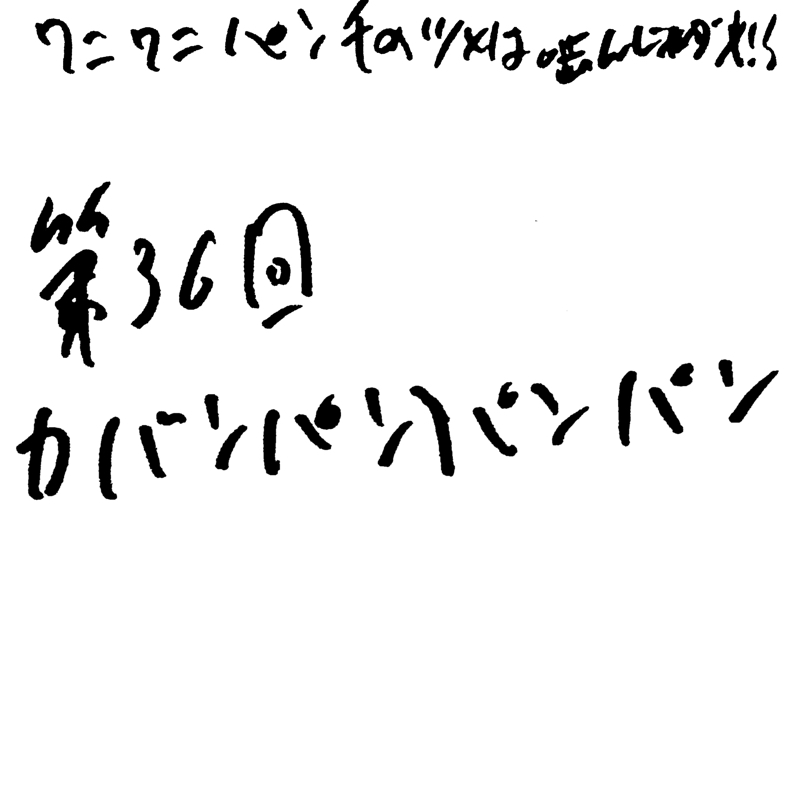 ワニワニパンチのツメは噛んじゃダメ!!
第36回
カバンパンパンパン